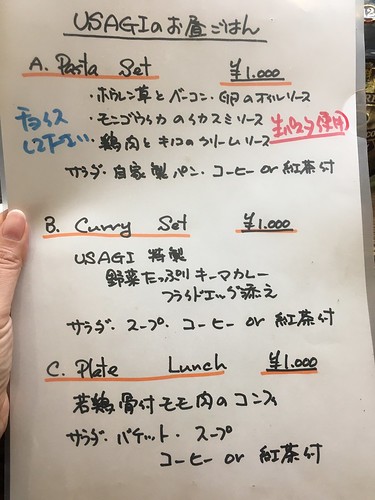 USAGIのお昼ごはん
A. Pasta Set ¥1.000
・ホウレン草とベーコン・卵のオイルソース
チョイス
して下さい
・モンゴウイカのイカスミソース
生パスタ使用
・鶏肉とキノコのクリームソース
サラダ・自家製パン・コーヒー or 紅茶付
B. Curry Set ¥1.000
USAGI 特製
野菜たっぷりキーマカレー
フライドエッグ添え
サラダ・スープ・コーヒー or 紅茶付
C. Plate Lunch ¥1.000
若鶏骨付モモ肉のコンフィ
サラダ・バケット・スープ
コーヒー or 紅茶付